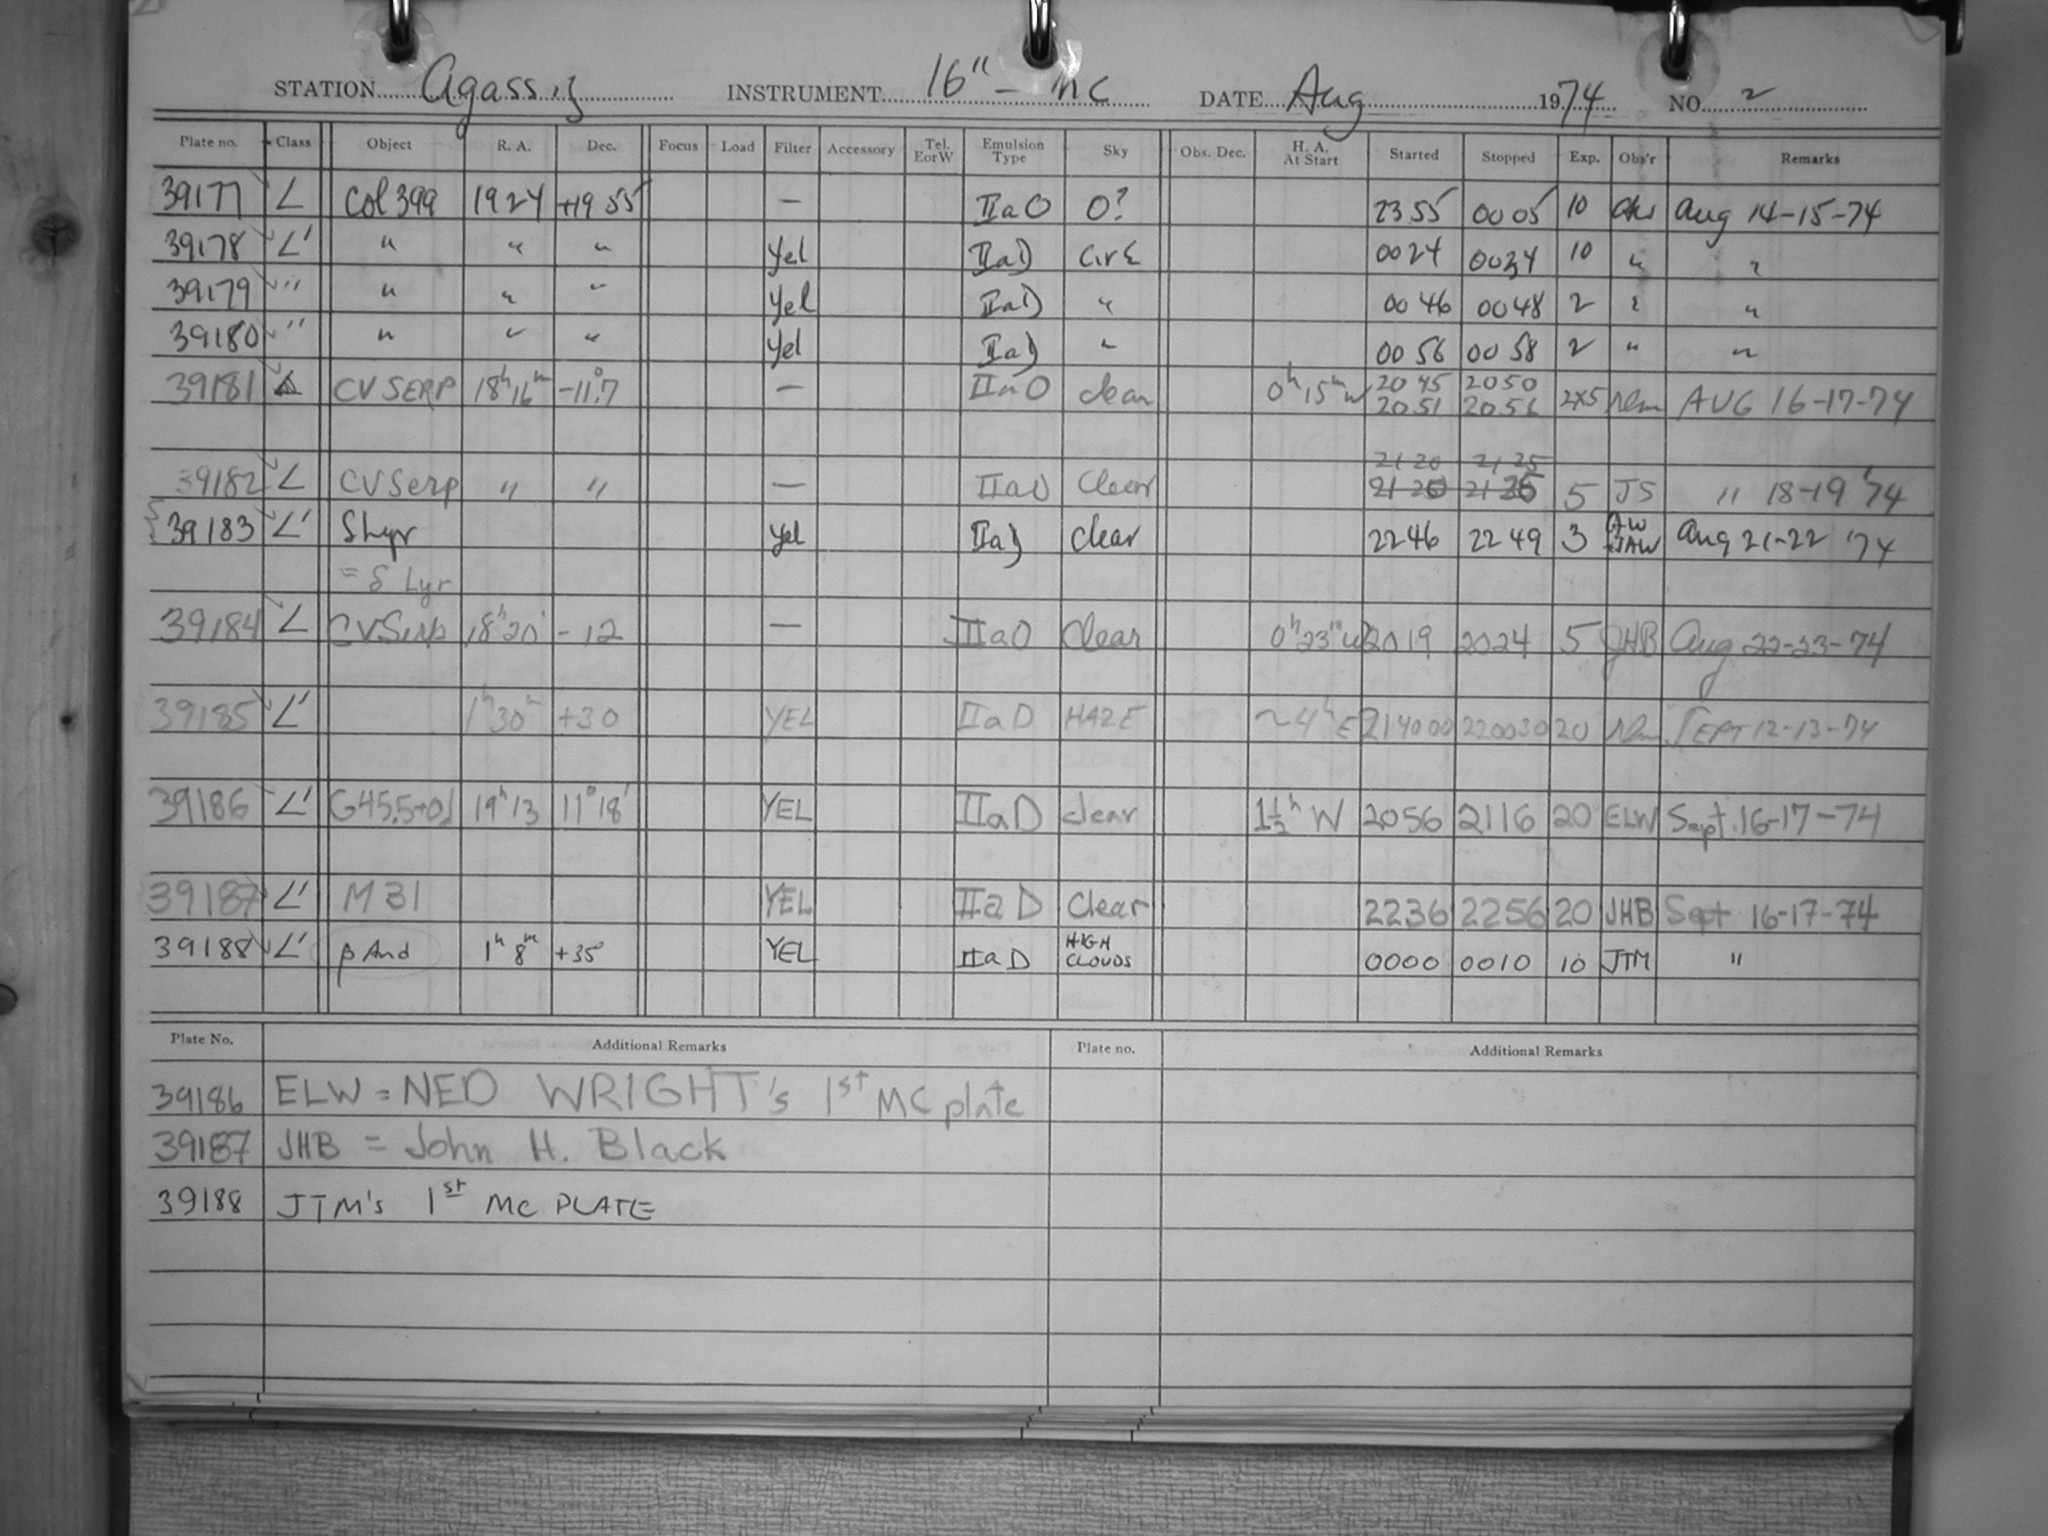 STATION Agassiz INSTRUMENT 16" - MC DATE Aug 1974 NO. 2
Plate no. Class Object R. A. Dec. Focus Load Filter Accessory Tel. E or W Emulsion Type Sky Obs. Dec. H. A. At Start Started Stopped Exp. Obs'r Remarks
39177 L Col 399 19 24 +19 55 — IIaO 0? 23 55 00 05 10 Aug 14-15-74
39178 L' " " " Yel IIaD 00 24 00 34 10 " "
39179 "" " " " Yel IIaD " 00 46 00 48 2 " "
39180 "" " " " Yel IIaD " 00 56 00 58 2 " "
39181 CV SERP 18h16m -11°.7 — IIaO clear 0h15mW 2045 2050 2x5 AUG 16-17-74
2051 2056
2120 2125
39182 L CV Serp " " — IIaO Clear 5 JS " 18-19 '74
39183 L' S Lyr Yel IIaD clear 2246 2249 3 AW JAW Aug 21-22 '74
= δ Lyr
39184 L CV Serp 18h20 -12 — IIaO Clear 0h23mW 2019 2024 5 JHB Aug 22-23-74
39185 L' 1h30m +30 YEL IIaD HAZE ~4hE 214000 220030 20 SEPT 12-13-74
39186 L' G45.5+0.1 19h13 11°18' YEL IIaD clear 1½h W 2056 2116 20 ELW Sept. 16-17-74
39187 L' M31 YEL IIaD Clear 2236 2256 20 JHB Sept 16-17-74
39188 L' β And 1h8m +35° YEL IIaD HIGH CLOUDS 0000 0010 10 JTM "
Plate No. Additional Remarks Plate no. Additional Remarks
39186 ELW = NED WRIGHT's 1st MC plate
39187 JHB = John H. Black
39188 JTM's 1st MC PLATE